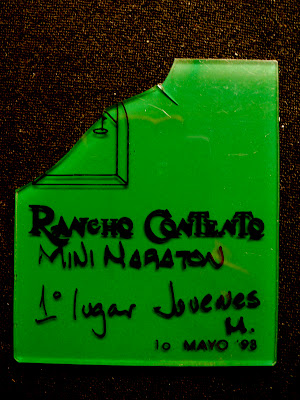 RANCHO CONTENTO
MINI MARATON
1º lugar Jovenes
M.
10 MAYO '98